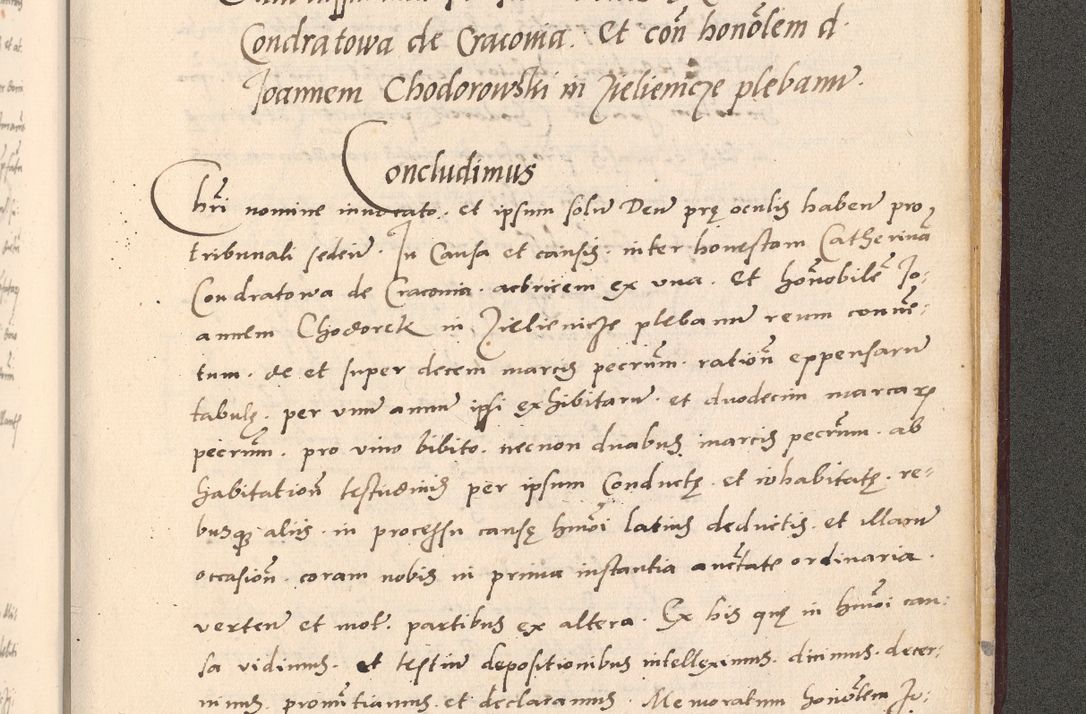 Condratowa de Cracovia. Et coñ honõlem d.
Joannem Chodorowski in Zielienicze plebanũ.
Concludimus
Chri nomine invocato. et ipsum solũ Deũ prę oculis habeñ pro
tribunali sedeñ. In Causa et causis. inter honestam Catherinã
Condratowa de Cracovia. actricem ex una. Et hoñobilẽ Jo:
annem Chodorek in Zielienicze plebanũ reum convẽ:
tum. de et super decem marcis pecũm. rationẽ expensarũ
tabulę. per unũ annũ ipsi exhibitarũ. et duodecim marcarꝝ
pecũm. pro vino bibito. necnon duabus marcis pecũm. ab
habitationẽ testudinis per ipsum conductę. et inhabitatę. re-
busqꝫ aliis. in processu causę hmõi latius deductis. et illarũ
occasionẽ. coram nobis in prima instantia auctẽtate ordinaria.
verteñ et mot. partibus ex altera. Ex his quę in hmõi cau:
sa vidimus. et testiũ depositionibus intelleximus. dicimus. decer:
nimus. pronũtiamus. et declaramus. Memoratum honõlem Jo: